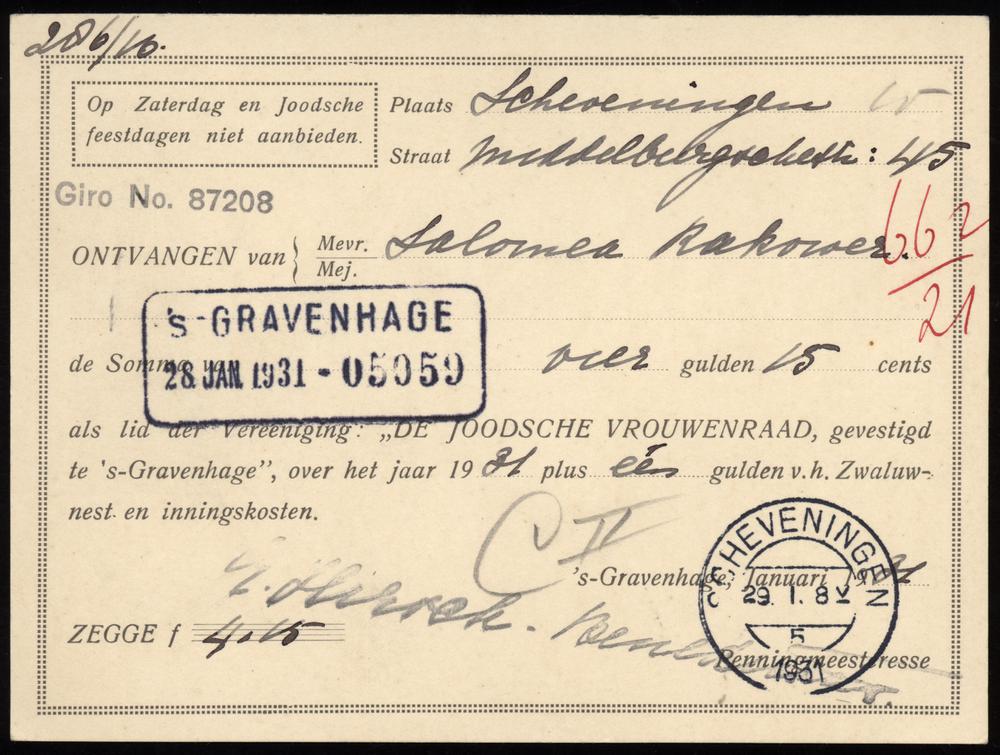 286/10.
Op Zaterdag en Joodsche
feestdagen niet aanbieden.
Plaats Scheveningen 15
Straat 45
Giro No. 87208
ONTVANGEN van { Mevr. Mej. Salomea Rakower.
662/21
's-GRAVENHAGE
28 JAN 1931 - 05059
de Somma van vier gulden 15 cents
als lid der Vereeniging: „DE JOODSCHE VROUWENRAAD, gevestigd
te 's-Gravenhage", over het jaar 1931 plus één gulden v.h. Zwaluw-
nest en inningskosten.
C II
's-Gravenhage, Januari, 1931
SCHEVENINGEN
29. 1. 8 V
5
1931
ZEGGE f 4.15
Penningmeesteresse